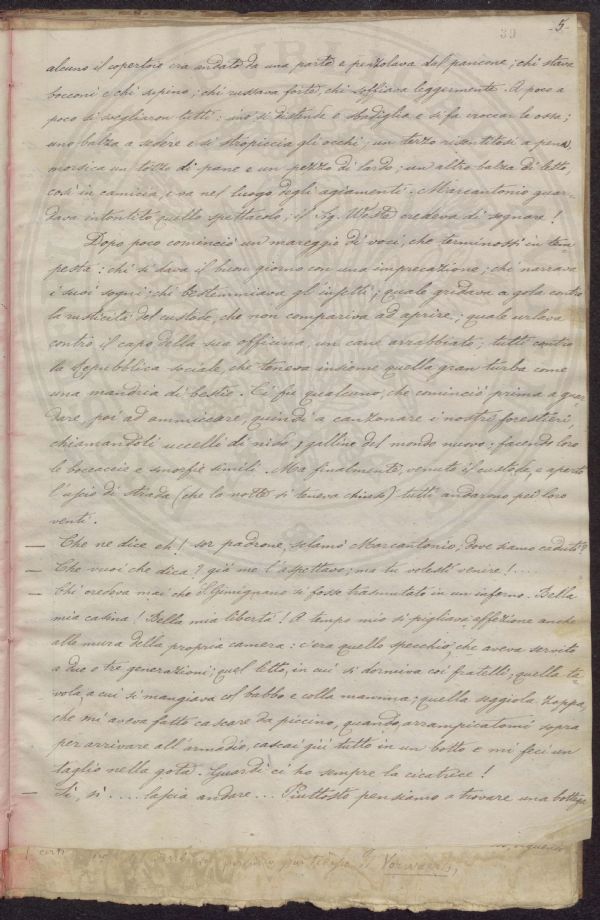 39 5.
alcuno il copertoio era andato da una parte e penzolava dal pancone; chi stava
bocconi e chi supino; chi russava forte, chi soffiava leggermente. A poco a
poco si svegliaron tutti: uno si distende e sbadiglia e si fa croccar le ossa;
uno balza a sedere e si stropiccia gli occhi; un terzo risentitosi a pena
morsica un tozzo di pane e un pezzo di lardo; un altro balza di letto,
così in camicia, e va nel luogo degli agiamenti. Marcantonio guar-
dava intontito quello spettacolo; il Sig. West credeva di sognare!
Dopo poco cominciò un mareggio di voci, che terminossi in tem
pesta: chi si dava il buon giorno con una imprecazione; chi narrava
i suoi sogni; chi bestemmiava gl'insetti; quale gridava a gola contro
la rusticità del custode, che non compariva ad aprire; quale urlava
contro il capo della sua officina, un cane arrabbiato; tutti contro
la Repubblica sociale, che teneva insieme quella gran turba come
una mandria di bestie. Ci fu qualcuno, che cominciò prima a guar
dare, poi ad ammiccare, quindi a canzonare i nostri forestieri,
chiamandoli uccelli di nido, galline del mondo nuovo; facendo loro
le boccacce e smorfie simili. Ma finalmente, venuto il custode, e aperto
l'uscio di strada (che la notte si teneva chiuso) tutti andarono pei loro
venti.
— Che ne dice eh! sor padrone, sclamò Marcantonio; dove siamo caduti?
— Che vuoi che dica? già me l'aspettavo; ma tu volesti venire!...
— Chi credeva mai che S. Gimignano si fosse trasmutato in un inferno. Bella
mia casina! Bella mia libertà! A tempo mio si pigliava affezione anche
alle mura della propria camera: c'era quello specchio, che aveva servito
a due e tre generazioni; quel letto, in cui si dormiva coi fratelli; quella ta-
vola, a cui si mangiava col babbo e colla mamma; quella seggiola zoppa,
che mi aveva fatto cascare da piccino, quando, arrampicatomi sopra
per arrivare all'armadio, cascai giù tutto in un botto e mi feci un
taglio nella gota. Guardi ci ho sempre la cicatrice!
— Sì, sì.... lascia andare... Piuttosto pensiamo a trovare una bottega